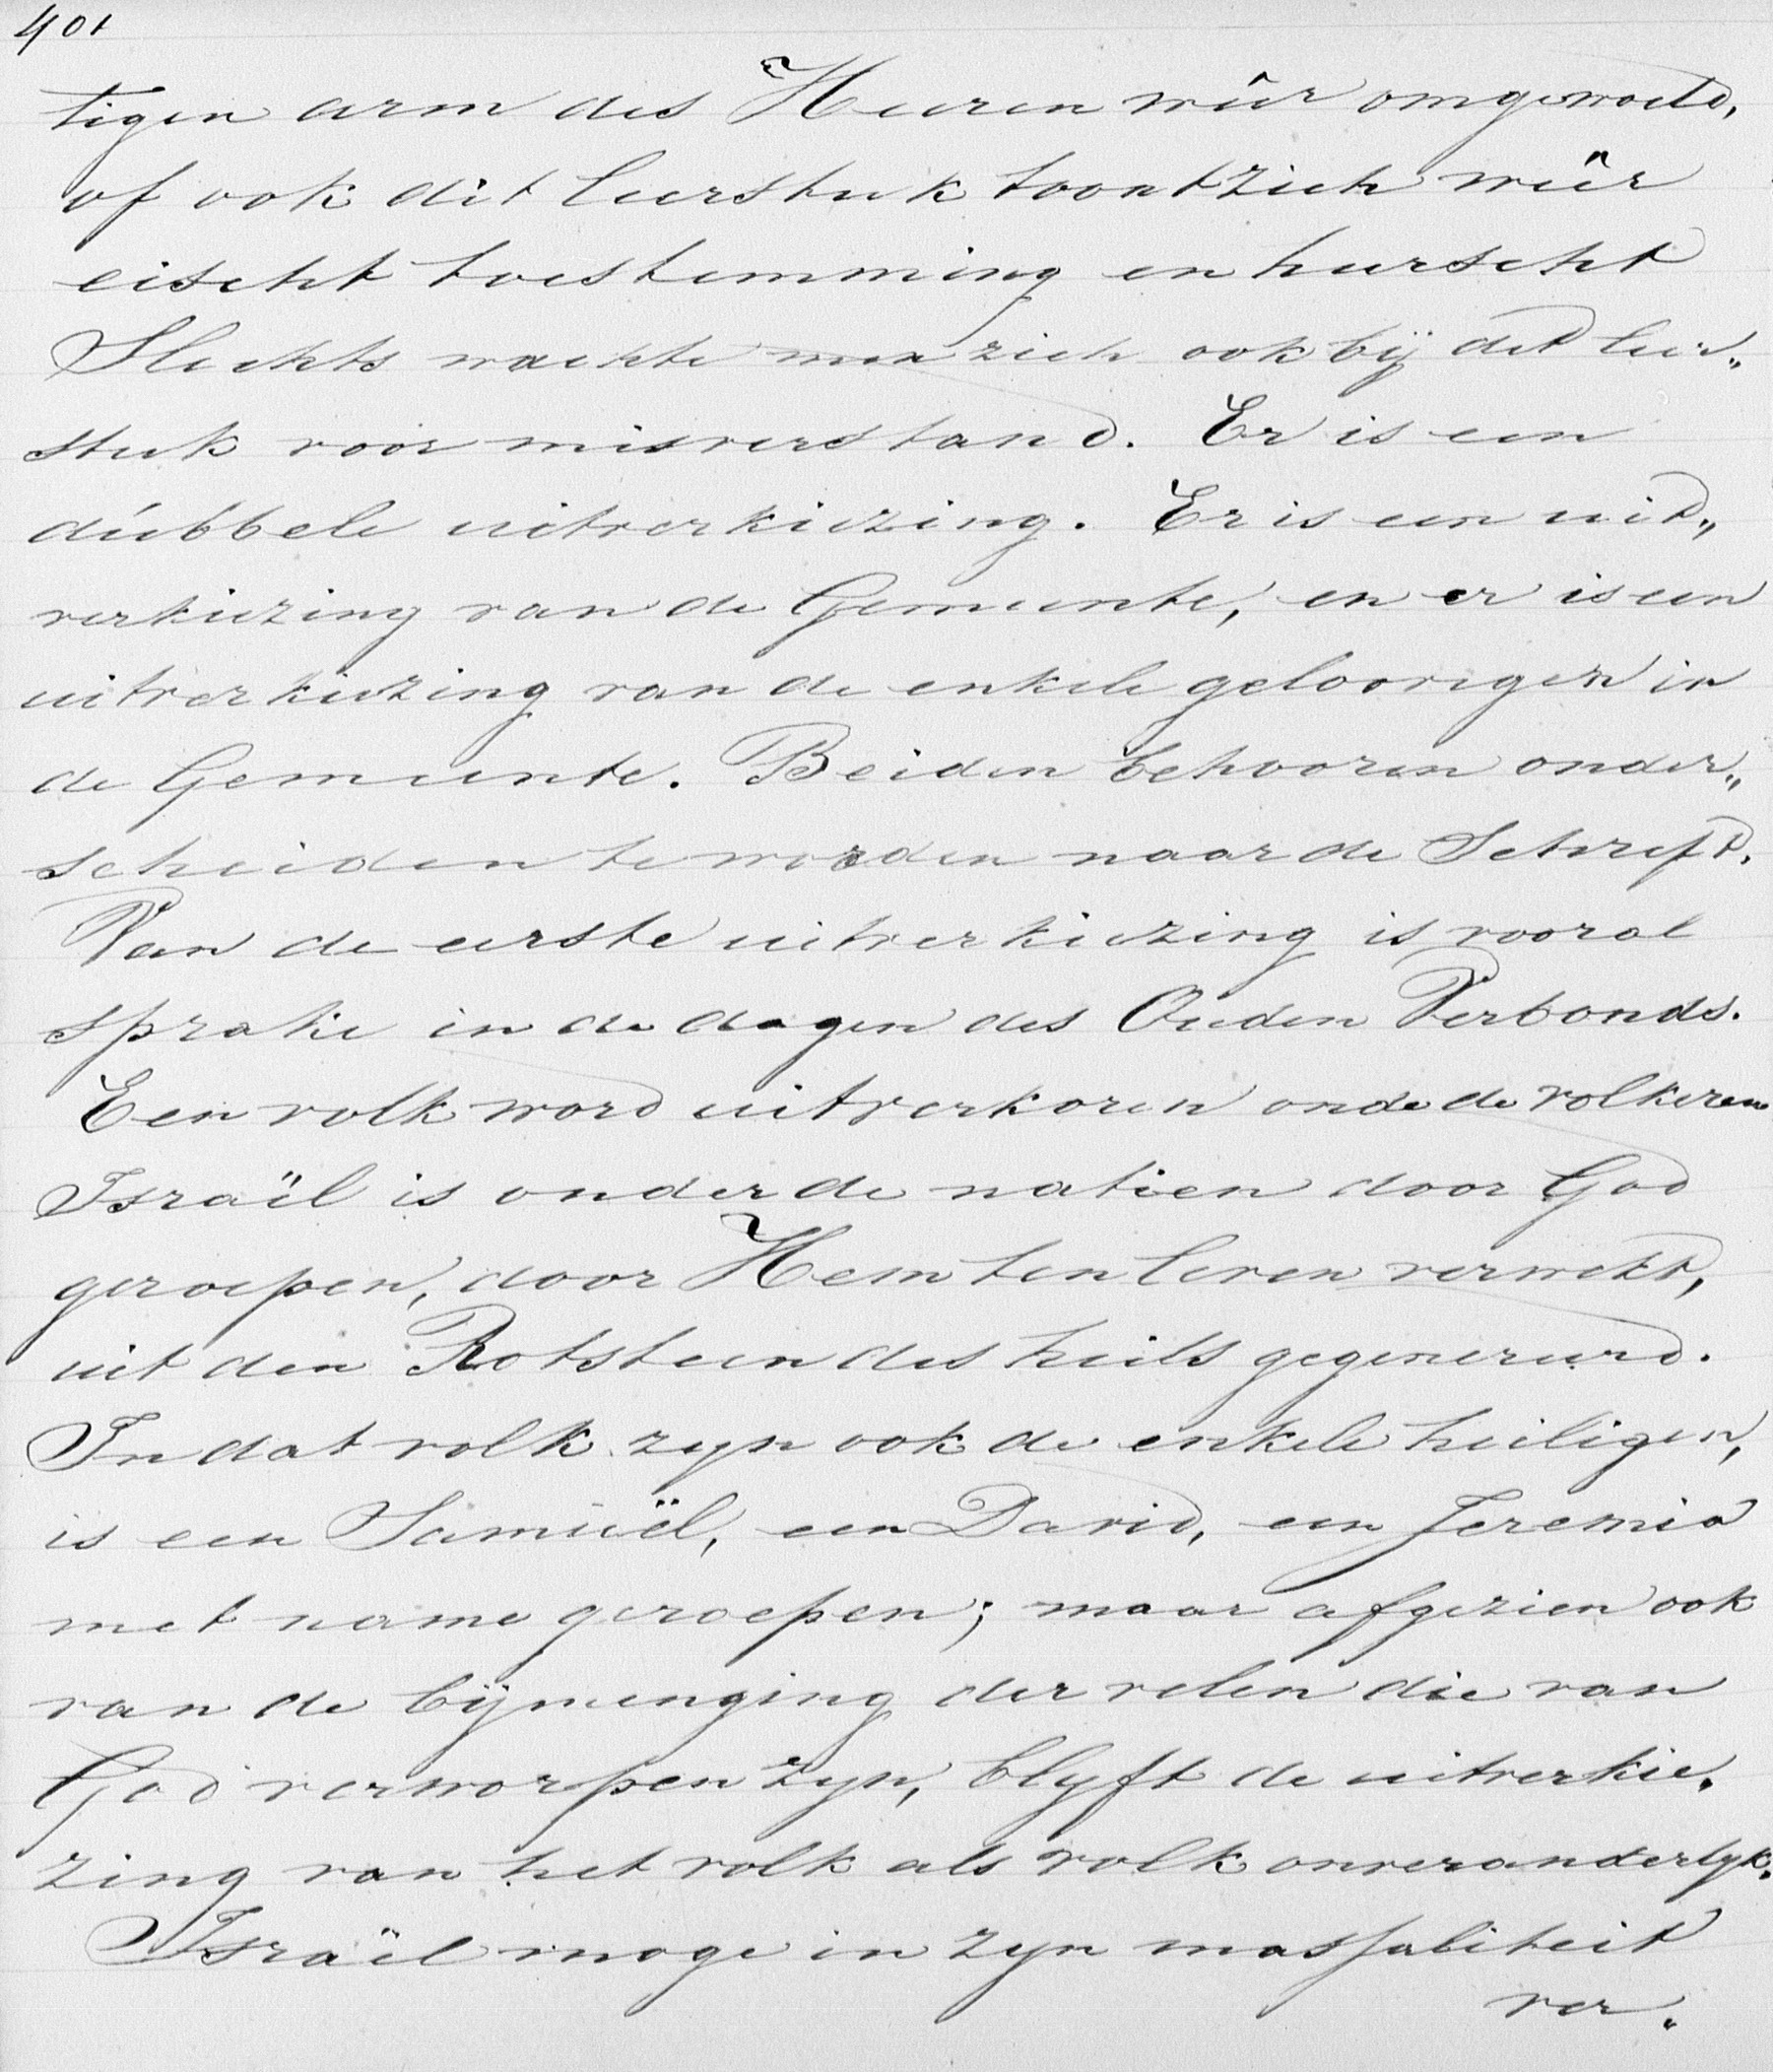 401
tigen arm des Heeren wêer omgewoeld,
of ook dit leerstuk toont zich wêer
eischt toestemming en heerscht
Slechts wachte men zich ook bij dit leer„
stuk voor misverstand. Er is een
dúbbele uitverkiezing. Er is een uit„
verkiezing van de Gemeente, en er is een
uitverkiezing van de enkele geloovigen in
de Gemeente. Beiden behooren onder„
scheiden te worden naar de Schrift.
Van de eerste uitverkiezing is vooral
sprake in de dagen des Ouden Verbonds.
Een volk word uitverkoren onde de volkeren
Israël is onder de natien door God
geroepen, door Hem ten leven verwekt,
uit den Rotssteen des heils gegenereerd.
In dat volk zyn ook de enkele heiligen,
is een Samuël, een David, een Jeremia
met name geroepen; maar afgezien ook
van de bijmenging der velen die van
God verworpen zyn, blyft de uitverkie„
zing van het volk als volk onveranderlyk.
Israël moge in zyn massaliteit
ver„